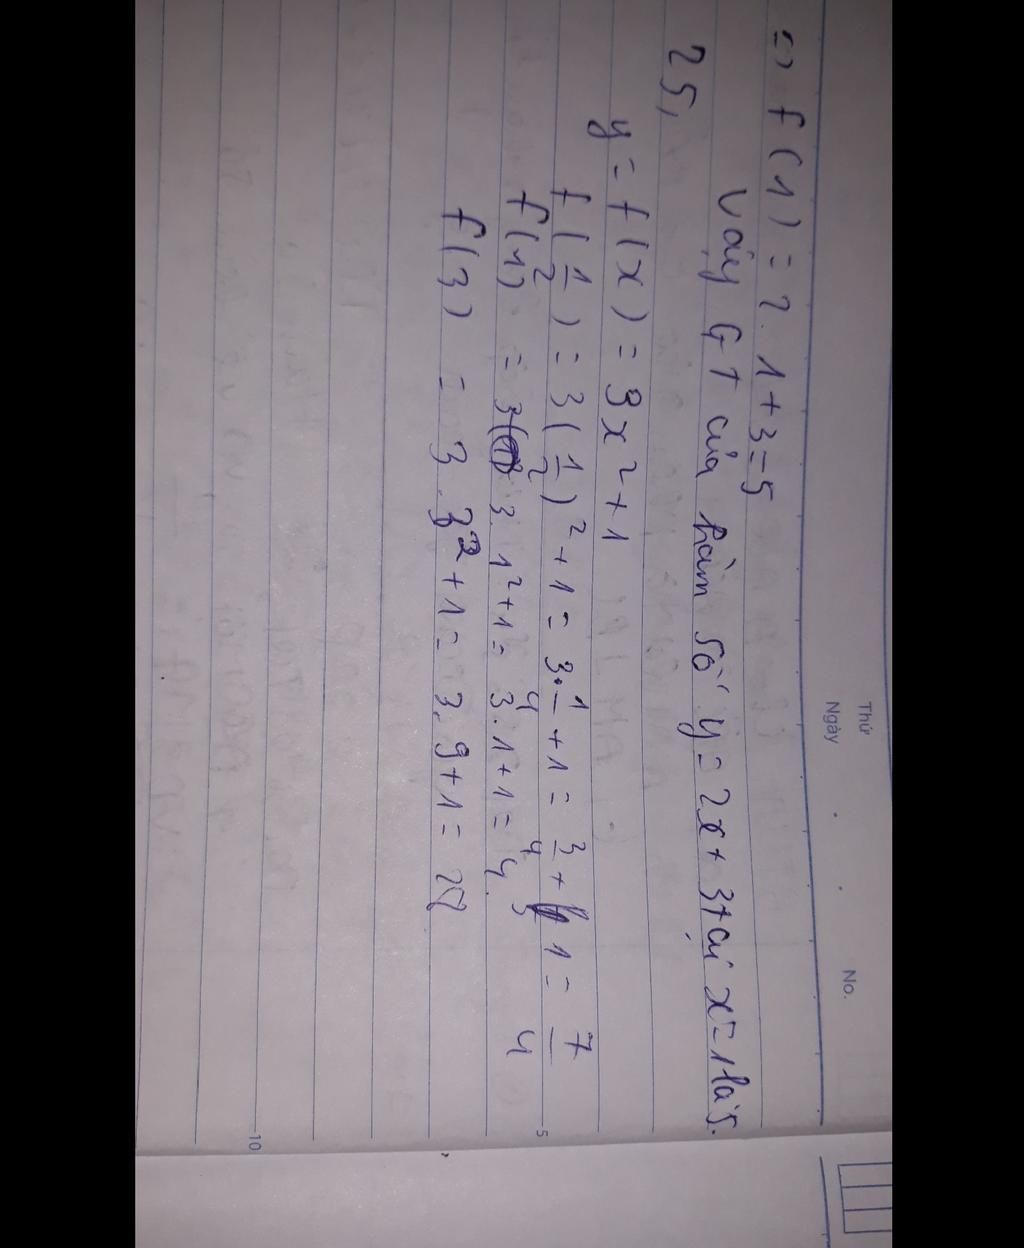 Thứ
Ngày
No.
=> f(1) = 2.1+3=5
Vậy GT của hàm số y = 2x+3 tại x=1 là 5.
25,
y = f(x) = 3x² + 1
f(1/2) = 3(1/2)² + 1 = 3.1/4 + 1 = 3/4 + 1 = 7/4
f(1) = 3. 1²+1= 3.1+1= 4.
f(3) = 3.3²+1= 3.9+1= 28
5
10